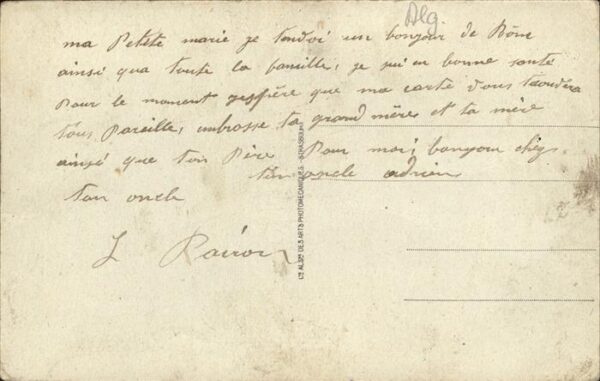 Alg
ma Petite marie je tandoi un bonjour de Bône
ainsi qua toute la famille, je sui en bonne santé
Pour le moment gespère que ma carte vous trouvera
tous Pareille, umbrasse ta grand mère et ta mère
ainsi que ton Père Pour moi, bonjour chèz
ton oncle adrien
ton oncle
L
Cie ALSne DES ARTS PHOTOMECANIQUES - STRASBOURG